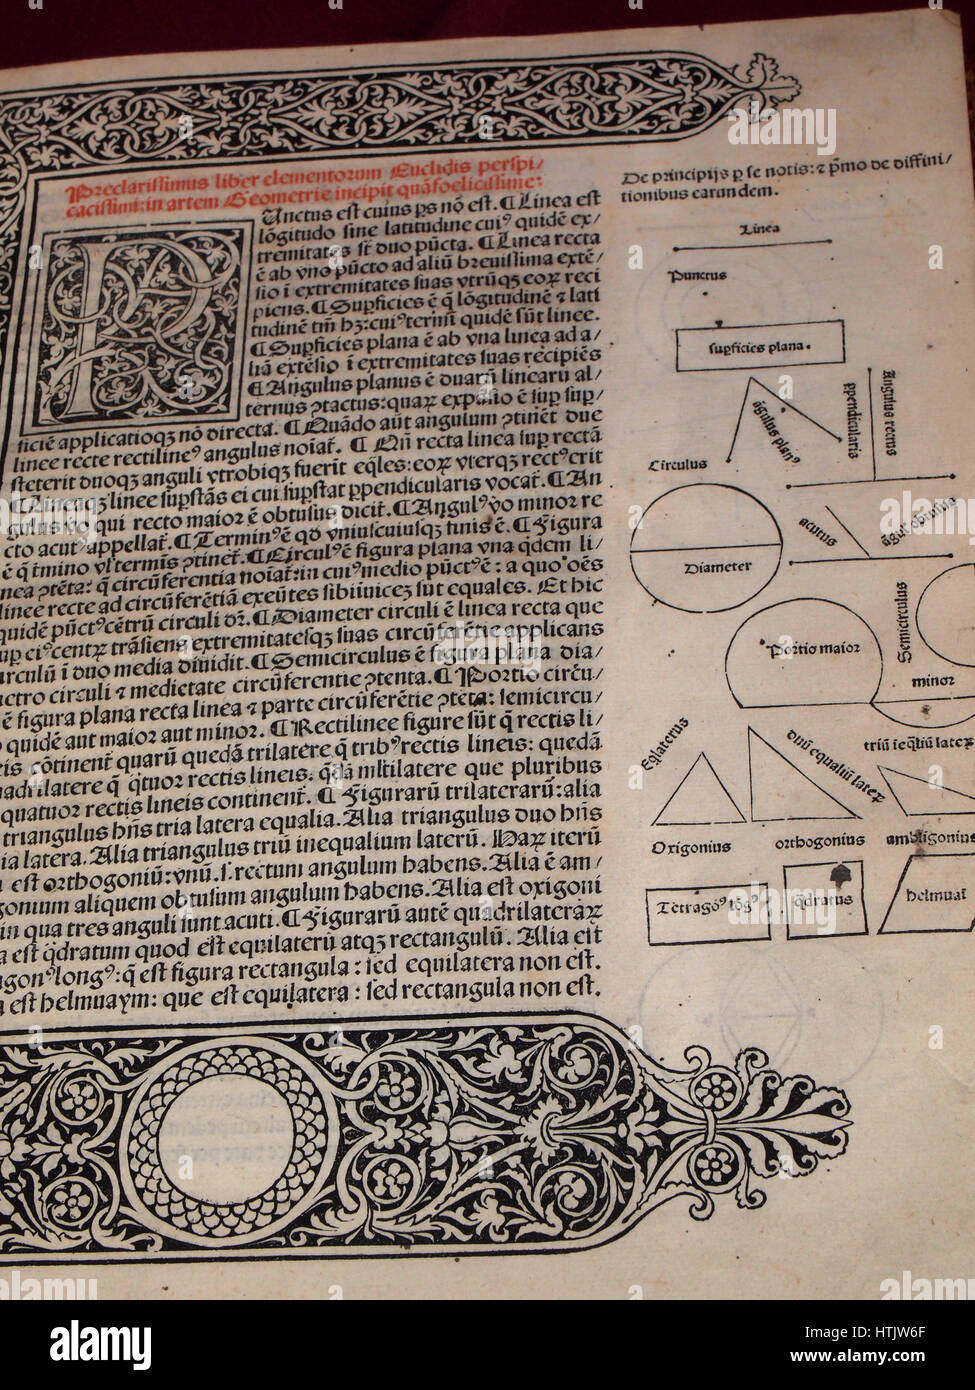 Preclarissimus liber elementorum Euclidis perspi/
cacissimi: in artem Geometrie incipit quãfoelicissime:
Unctus est cuius ps nõ est. ¶ Linea est
lõgitudo sine latitudine cuiꝰ quidẽ ex/
tremitates st̃ duo pũcta. ¶ Linea recta
ẽ ab vno pũcto ad aliũ breuissima extẽ/
sio ĩ extremitates suas vtrũqꝫ eoꝝ reci
piens. ¶ Supficies ẽ q̃ lõgitudinẽ ⁊ lati
tudinẽ tm̃ hꝫ: cuiꝰ termĩ quidẽ sũt linee.
¶ Supficies plana ẽ ab vna linea ad a/
liã extẽsio ĩ extremitates suas recipiẽs
¶ Angulus planus ẽ duarũ linearũ al/
ternus ꝯtactus: quaꝝ expãsio ẽ sup sup/
ficiẽ applicatioqꝫ nõ directa. ¶ Quãdo aũt angulum ꝯtinẽt due
linee recte rectilineꝰ angulus noĩat̃. ¶ Qñ recta linea sup rectã
steterit duoqꝫ anguli vtrobiqꝫ fuerit eq̃les: eoꝝ vterqꝫ rectꝰ erit
¶ Lineaqꝫ linee supstãs ei cui supstat ppendicularis vocat̃. ¶ An
gulus ṽo qui recto maior ẽ obtusus dicit̃. ¶ Angulꝰ ṽo minor re
cto acutꝰ appellat̃. ¶ Terminꝰ ẽ qd̃ vniuscuiusqꝫ finis ẽ. ¶ Figura
ẽ q̃ t̃mino vl̃ termis ꝯtinet̃. ¶ Circulꝰ ẽ figura plana vna q̃dem li/
nea ꝯtẽta: q̃ circũferentia noĩat̃: in cuiꝰ medio pũctꝰ ẽ: a quo oẽs
linee recte ad circũferẽtiã exeũtes sibiinuicẽ sũt equales. Et hic
quidẽ pũctꝰ cẽtrũ circuli dr̃. ¶ Diameter circuli ẽ linea recta que
sup eiꝰ centꝝ trãsiens extremitatesqꝫ suas circũferẽtie applicans
circulũ ĩ duo media diuidit. ¶ Semicirculus ẽ figura plana dia/
metro circuli ⁊ medietate circũferentie ꝯtenta. ¶ Portio circu/
ẽ figura plana recta linea ⁊ parte circũferẽtie ꝯtẽta: semicircu/
quidẽ aut maior aut minor. ¶ Rectilinee figure sũt q̃ rectis li/
cõtinent̃ quarũ quedã trilatere q̃ tribꝰ rectis lineis: quedã
quadrilatere q̃ q̃tuor rectis lineis. q̃dã ml̃tilatere que pluribus
quatuor rectis lineis continent̃. ¶ Figurarũ trilaterarũ: alia
triangulus hñs tria latera equalia. Alia triangulus duo hñs
latera. Alia triangulus triũ inequalium laterũ. Haꝝ iterũ
est orthogoniũ: vnũ .s. rectum angulum habens. Alia ẽ am/
aliquem obtusum angulum habens. Alia est oxigoni
in qua tres anguli sunt acuti. ¶ Figurarũ autẽ quadrilateraꝝ
est q̃dratum quod est equilaterũ atqꝫ rectangulũ. Alia est
longꝰ: q̃ est figura rectangula: sed equilatera non est.
est helmuaym: que est equilatera: sed rectangula non est.
De principijs p se notis: ⁊ p̃mo de diffini/
tionibus earundem.
Linea
Punctus
supficies plana.
ãgulus planꝰ
ppendicularis
Angulus rectus
Circulus
Diameter
acutus
ãgulꝰ obtusus
Portio maior
Semicirculus
minor
Eq̃laterus
duũ equaliũ lateꝝ
triũ ĩeq̃liũ lateꝝ
Oxigonius
orthogonius
ambligonius
Tetragõꝰ lõgꝰ
q̃dratus
helmuaĩ
alamy stock photo
HTJW6F
www.alamy.com